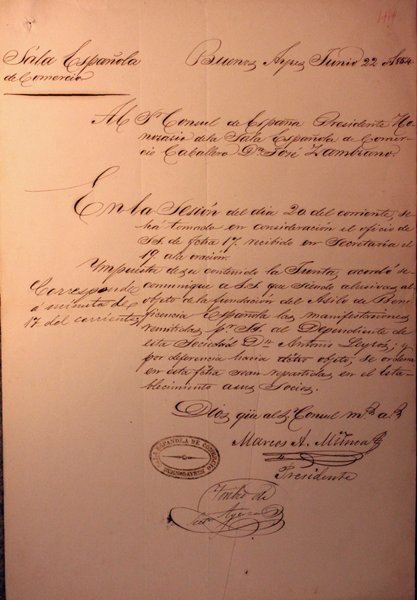 Sala Española
de Comercio
Buenos Ayres Junio 22 de 1854
Al Sr Consul de España Presidente Ho-
norario de la Sala Española de Comer-
cio Caballero Dn José Zambrano.
En la Sesión del dia 20 del corriente, se
há tomado en consideración el oficio de
SS. de fcha 17, recibido en Secretaría el
19 a la oración.
Impuesta de su contenido la Junta, acordó se
comunique a S.S. que siendo alusivas, al
objeto de la fundación del Asilo de Bene-
ficencia Española las manifestaciones
remitidas pr SS. al Dependiente de
esta Sociedad Dn Antonio
por deferencia hacia dicho objeto, se ordena
en esta fcha sean repartidas en el esta-
blecimiento a sus Socios.
Corresponde
á minuta de
17 del corriente
Dios gue al Sr Consul ms as
Marcos A. Muñoa
Presidente
SALA ESPAÑOLA DE COMERCIO
BUENOS-AYRES